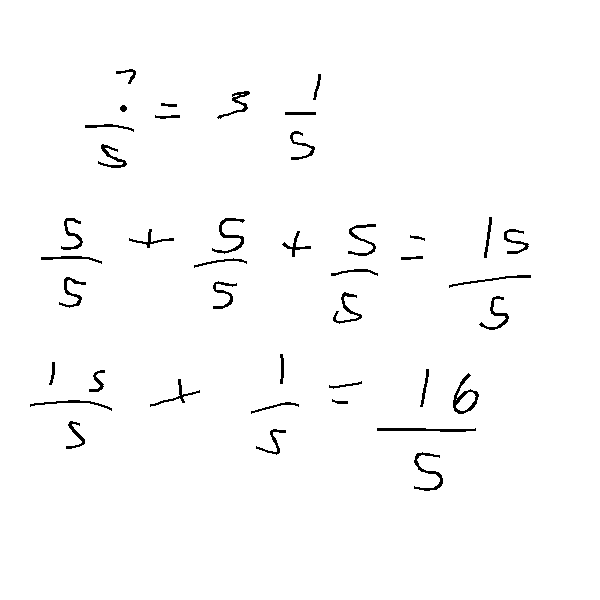 ?/5 = 3 1/5
5/5 + 5/5 + 5/5 = 15/5
15/5 + 1/5 = 16/5